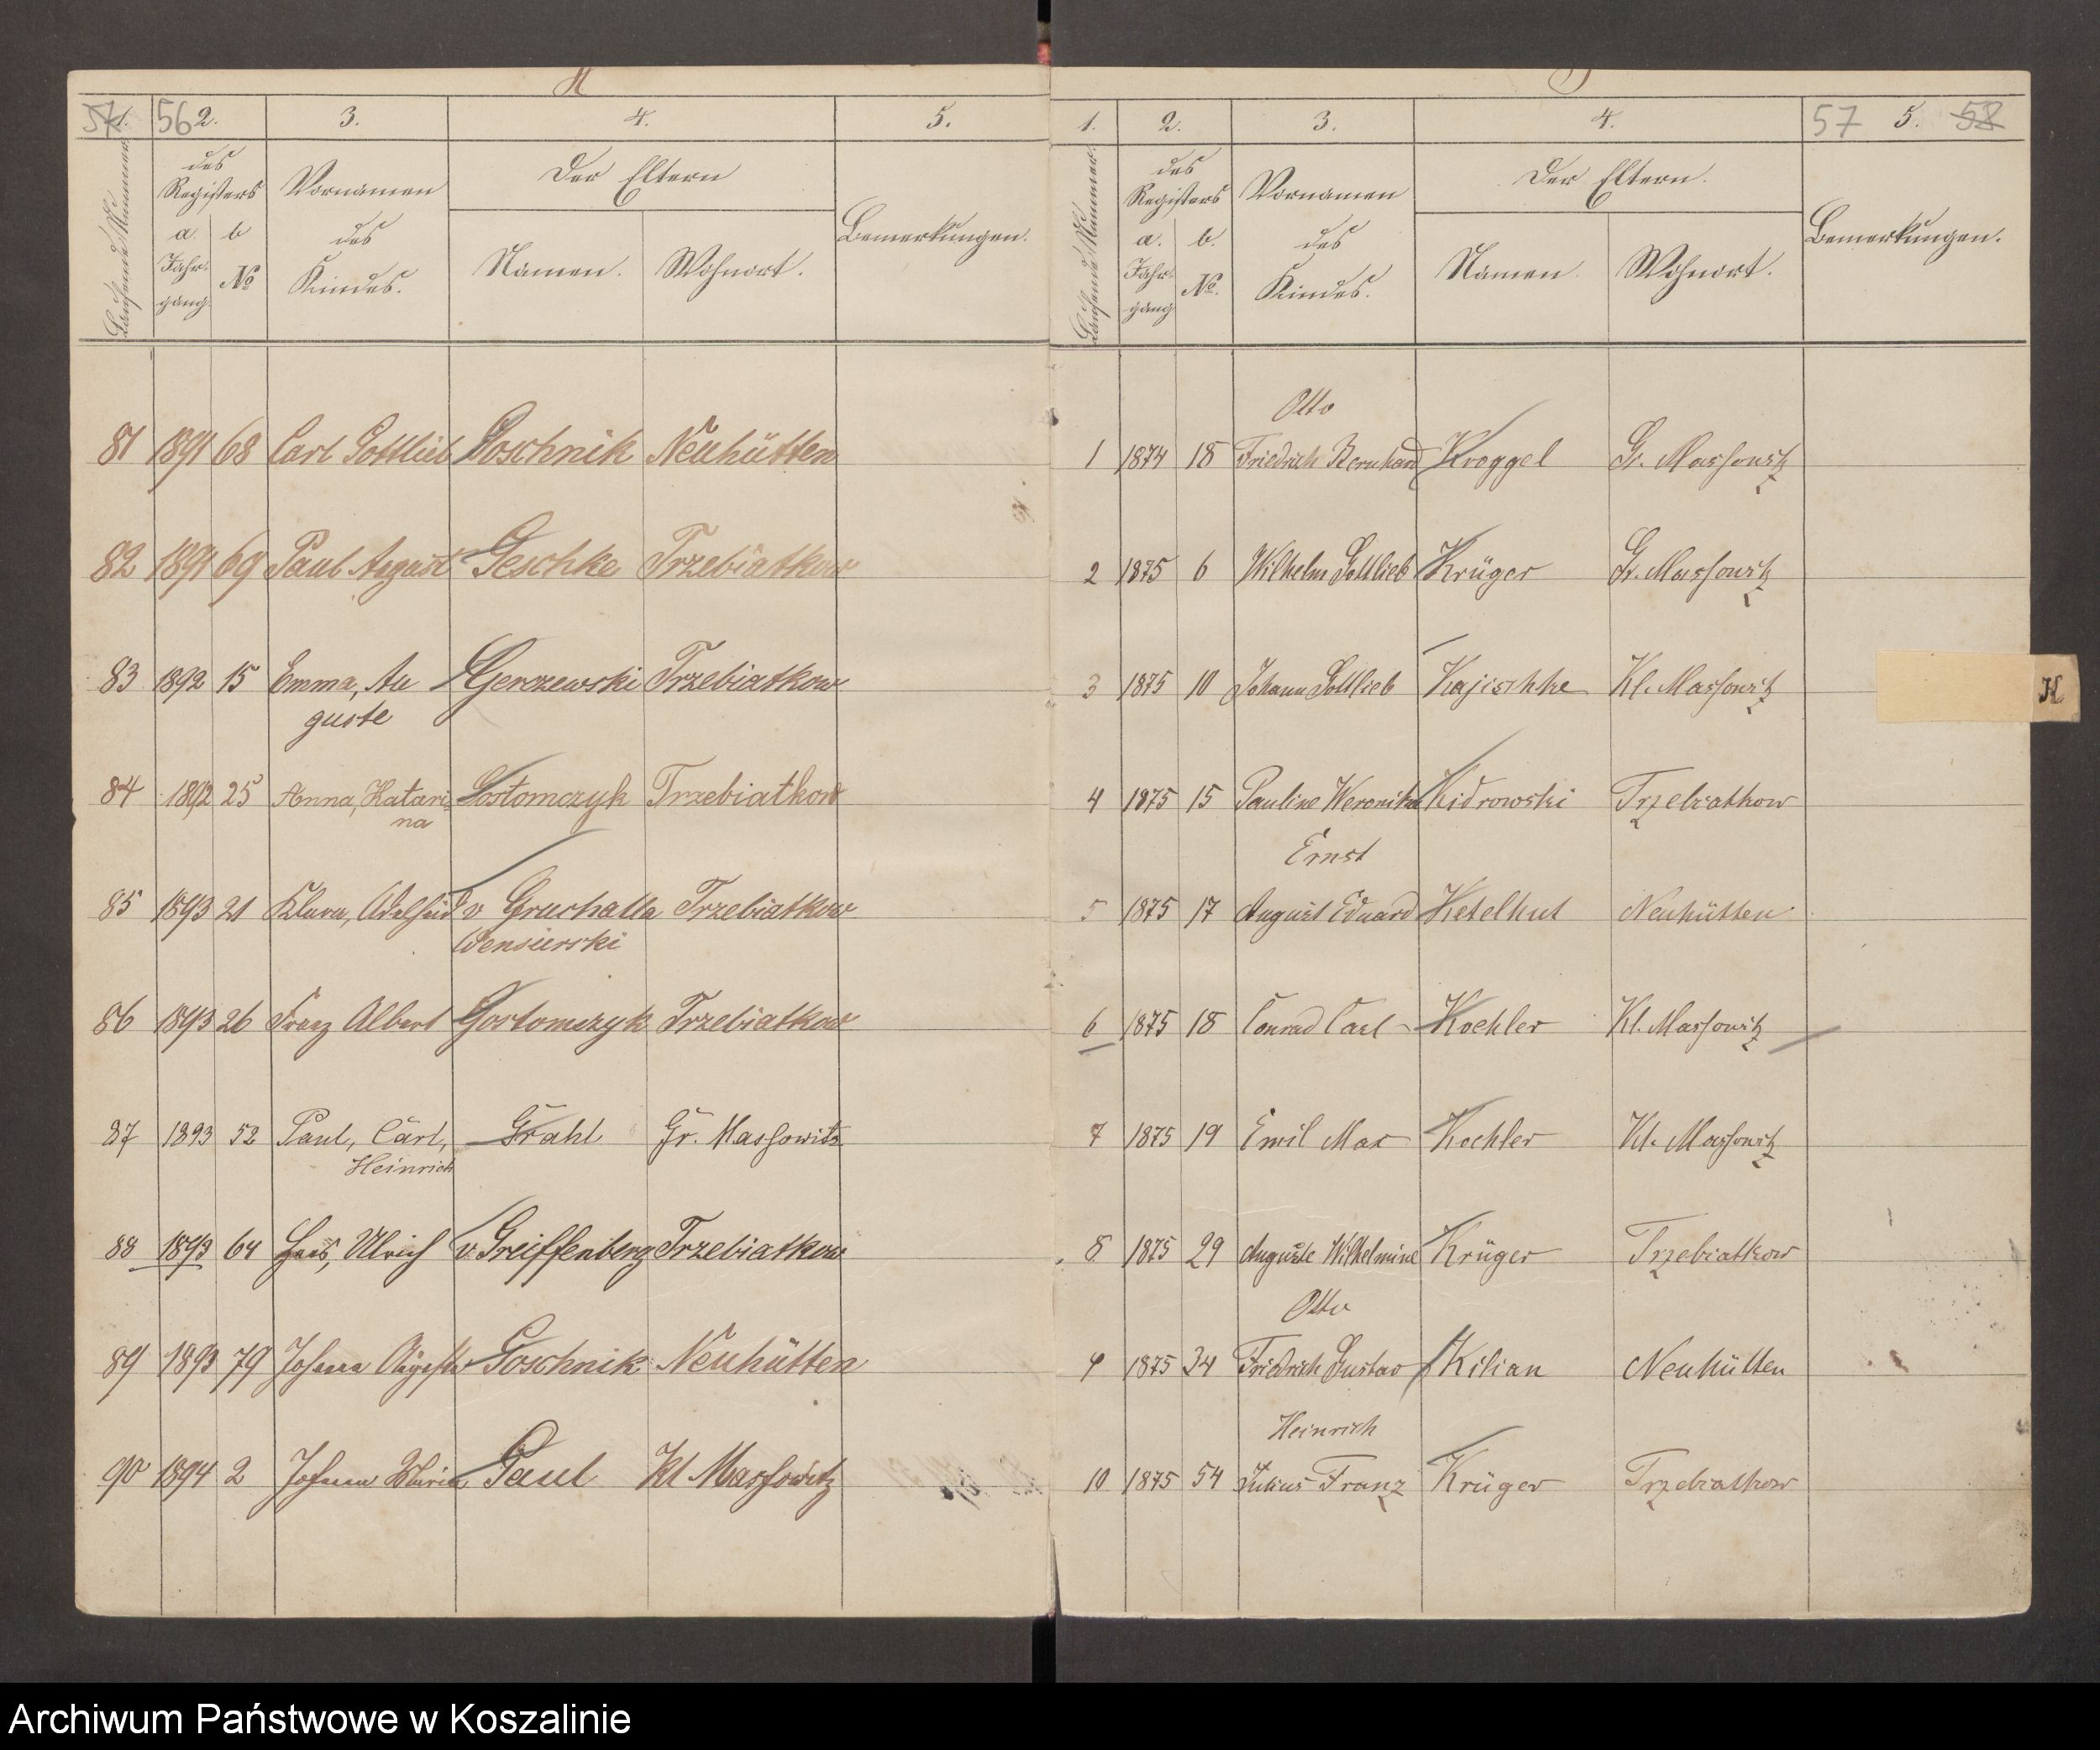 57 1. 56 2. 3. 4. 5.
Laufende Nummer.
des Registers
a. Jahrgang.
b №
Vornamen des Kindes.
Der Eltern
Namen. Wohnort.
Bemerkungen.
81 1891 68 Carl Gottlieb Goschnik Neuhütten
82 1891 69 Paul August Geschke Trzebiatkow
83 1892 15 Emma, Au Gerzewski Trzebiatkow
guste
84 1892 25 Anna, Katari Gostomczyk Trzebiatkow
na
85 1893 21 Klara, Adelheid v Gruchalla Trzebiatkow
Wensierski
86 1893 26 Franz Albert Gostomczyk Trzebiatkow
87 1893 52 Paul, Carl, Grahl Gr. Massowitz
Heinrich
88 1893 64 Hans, Ulrich v. Greiffenberg Trzebiatkow
89 1893 79 Johann Goschnik Neuhütten
90 1894 2 Maria Kl Massowitz
1. 2. 3. 4. 57 5. 58
Laufende Nummer.
des Registers
a. Jahrgang
b. №.
Vornamen des Kindes.
Der Eltern.
Namen. Wohnort.
Bemerkungen.
Otto
1 1874 18 Friedrich Bernhard Kroggel Gr. Massowitz
2 1875 6 Wilhelm Gottlieb Krüger Gr. Massowitz
3 1875 10 Johann Gottlieb Kajischke Kl. Massowitz
K
4 1875 15 Pauline Weronika Kidrowski Trzebiatkow
Ernst
5 1875 17 August Eduard Ketelhut Neuhütten
6 1875 18 Conrad Carl Koehler Kl. Massowitz
7 1875 19 Emil Max Koehler Kl. Massowitz
8 1875 29 Auguste Wilhelmine Krüger Trzebiatkow
Otto
9 1875 34 Friedrich Gustav Kilian Neuhütten
Heinrich
10 1875 54 Julius Franz Krüger Trzebiatkow
Archiwum Państwowe w Koszalinie